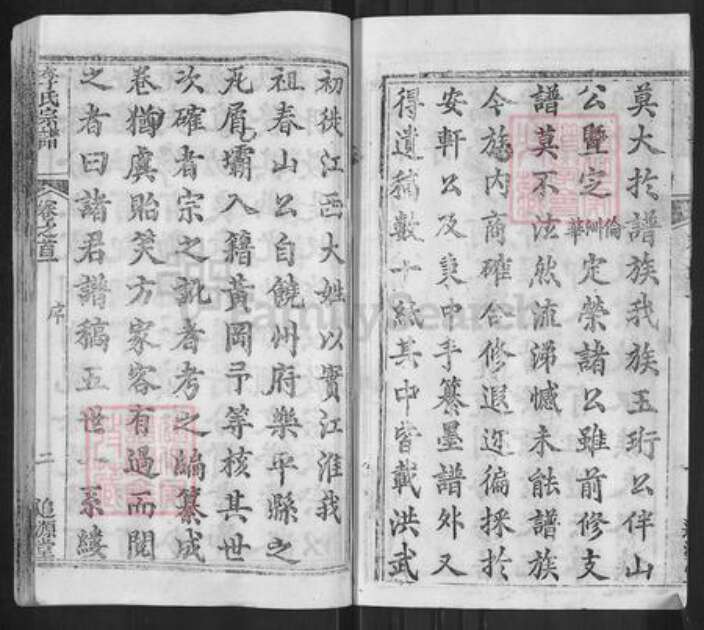 莫大於譜族我族玉珩公伴山
公暨定倫舢華定榮諸公雖前修支
譜莫不泫然流涕憾未能譜族
今族内商確合修遐迩徧採於
安軒公及秉中手纂墨譜外又
得遺稿數十紙其中皆載洪武
初徙江西大姓以實江淮我
祖春山公自饒州府樂平縣之
瓦屑壩入籍黃岡予等核其世
次確者宗之訛者考之編纂成
卷猶虞貽笑方家客有過而閱
之者曰諸君譜稿五世一系縷
李氏宗譜
卷之首
序
二
追源堂
FamilySearch